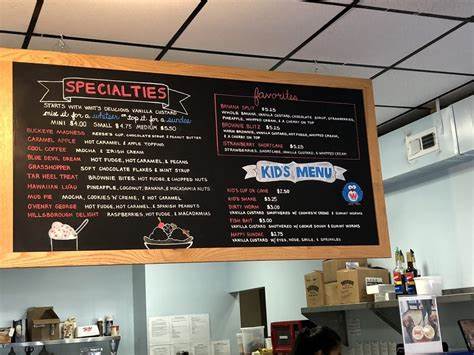 SPECIALTIES
STARTS WITH WHIT'S DELICIOUS VANILLA CUSTARD
mix it for a whitser or top it for a sundae
MINI $4.00 SMALL $4.75 MEDIUM $5.50
BUCKEYE MADNESS REESE'S CUP, CHOCOLATE SYRUP, & PEANUT BUTTER
CARAMEL APPLE HOT CARAMEL & APPLE TOPPING
COOL COFFEE MOCHA & IRISH CREAM
BLUE DEVIL DREAM HOT FUDGE, HOT CARAMEL, & PECANS
GRASSHOPPER SOFT CHOCOLATE FLAKES & MINT SYRUP
TAR HEEL TREAT BROWNIE BITES, HOT FUDGE, & HOT CARAMEL
HAWAIIAN LUAU PINEAPPLE, COCONUT, BANANA, & MACADAMIA NUTS
MUD PIE MOCHA, COOKIES 'N' CREME, & HOT CARAMEL
OVENRY GEORGE HOT FUDGE, HOT CARAMEL, & SPANISH PEANUTS
HILLSBOROUGH DELIGHT RASPBERRIES, HOT FUDGE, & MACADAMIAS
favorites
BANANA SPLIT $5.25
WHOLE BANANA, VANILLA CUSTARD, CHOCOLATE SYRUP, STRAWBERRIES,
PINEAPPLE, WHIPPED CREAM, & A CHERRY ON TOP
BROWNIE BLITZ $5.25
WARM BROWNIE, VANILLA CUSTARD, HOT FUDGE, WHIPPED CREAM,
& A CHERRY ON TOP
STRAWBERRY SHORTCAKE $5.25
STRAWBERRIES, SHORTCAKE, VANILLA CUSTARD, & WHIPPED CREAM
KID'S MENU
KID'S CUP OR CONE $2.50
KID'S SHAKE $3.25
DIRTY WORM $3.00
VANILLA CUSTARD SMOTHERED W/ COOKIES 'N' CREME & GUMMY WORMS
FISH BAIT $3.00
VANILLA CUSTARD SMOTHERED W/ COOKIE DOUGH & GUMMY WORMS
HAPPY SUNDAE $2.75
VANILLA CUSTARD W/ EYES, NOSE, SMILE, & SPRINKLES